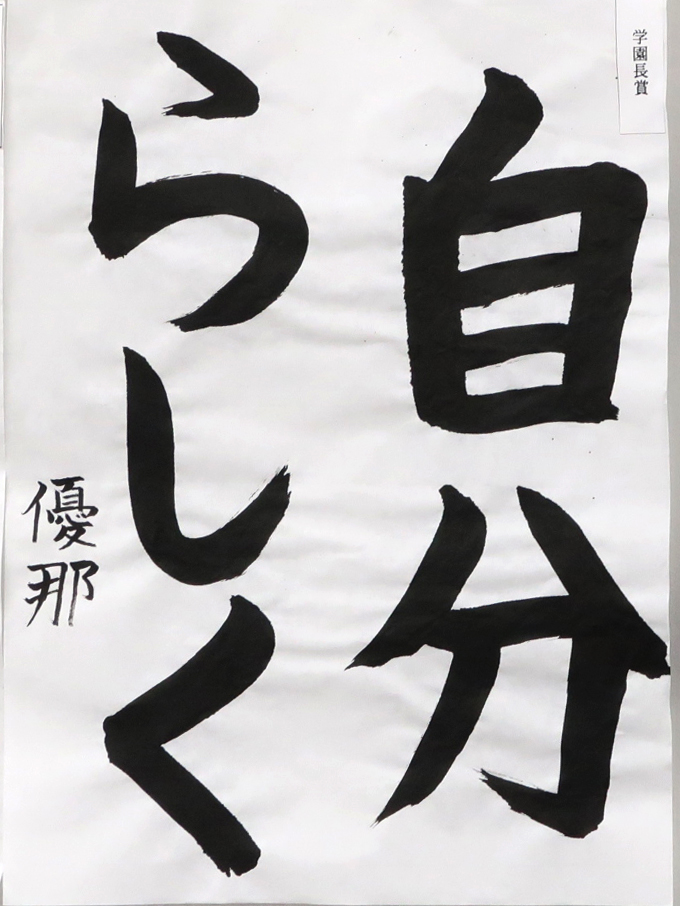 学園長賞
自分
らしく
優那